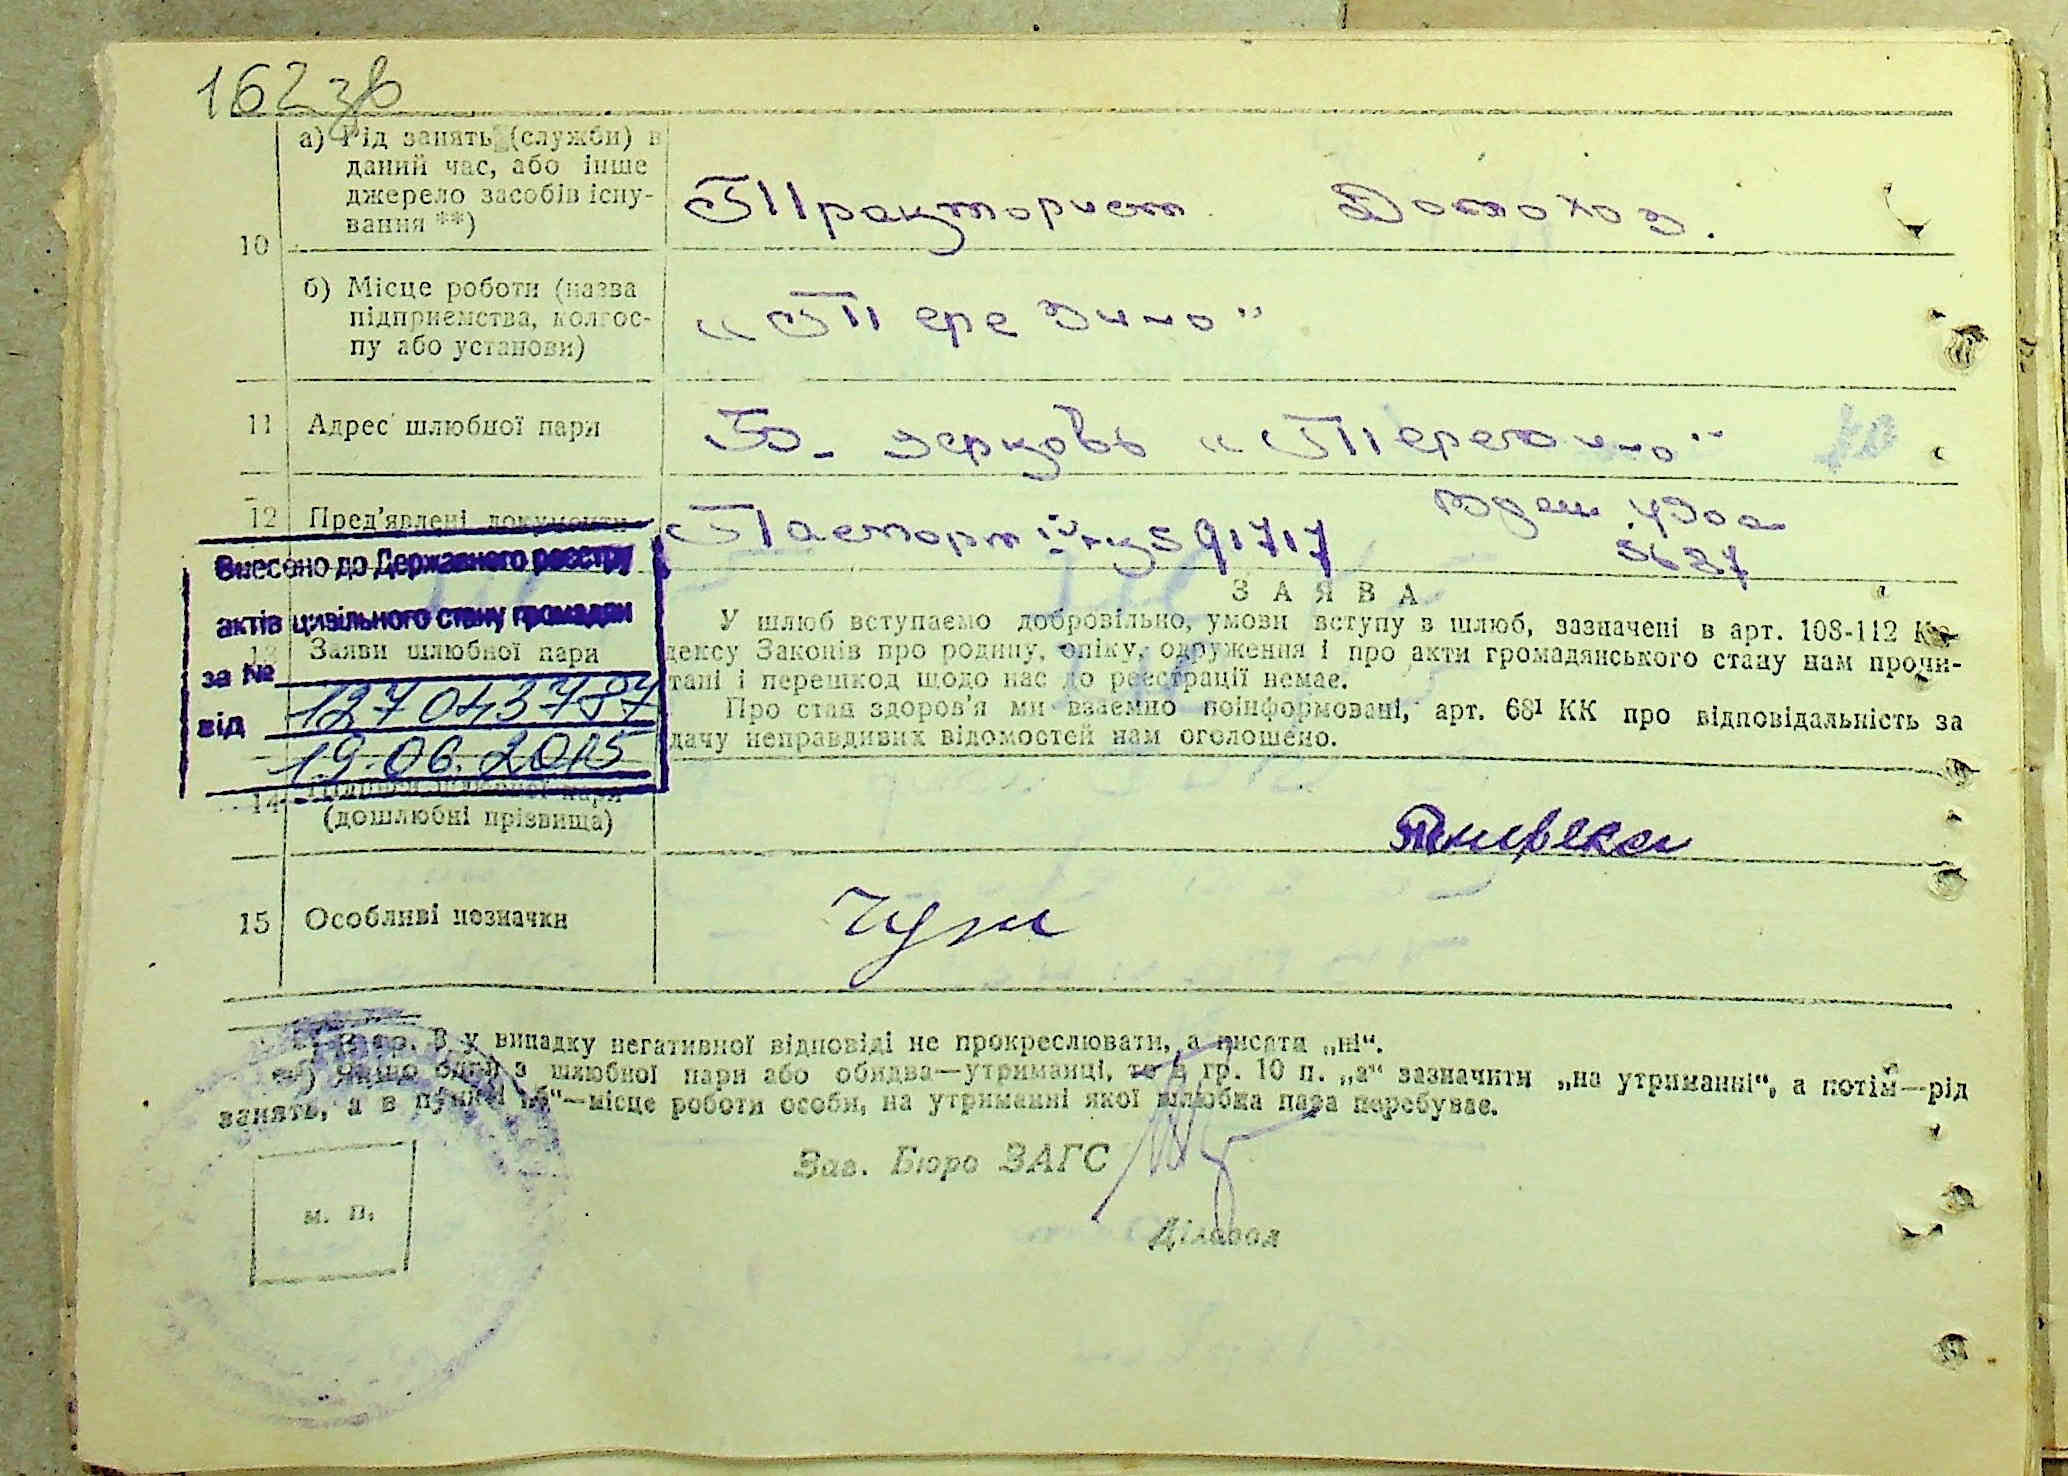 162 зв
а) Рід занять (служби) в
даний час, або інше
джерело засобів існу-
вання **)
Тракторист Домохоз.
10
б) Місце роботи (назва
підприємства, колгос-
пу або установи)
11 Адрес шлюбної пари
Б. церковь
12 Пред'явлені документи
Паспорт 591717
5627
Внесено до Державного реєстру
актів цивільного стану громадян
за № 127043787
від 19.06.2015
13 Заяви шлюбної пари
ЗАЯВА
У шлюб вступаємо добровільно, умови вступу в шлюб, зазначені в арт. 108-112 Ко-
дексу Законів про родину, опіку, одруження і про акти громадянського стану нам прочи-
тані і перешкод щодо нас до реєстрації немає.
Про стан здоров'я ми взаємно поінформовані, арт. 68¹ КК про відповідальність за
дачу неправдивих відомостей нам оголошено.
14 Підписи шлюбної пари
(дошлюбні прізвища)
15 Особливі позначки
*) В гр. 3 у випадку негативної відповіді не прокреслювати, а писати „ні“.
**) Якщо один з шлюбної пари або обидва—утриманці, то в гр. 10 п. „а“ зазначити „на утриманні“, а потім—рід
занять, а в пункті „б“—місце роботи особи, на утриманні якої шлюбна пара перебуває.
Зав. Бюро ЗАГС
м. п.
Діловод